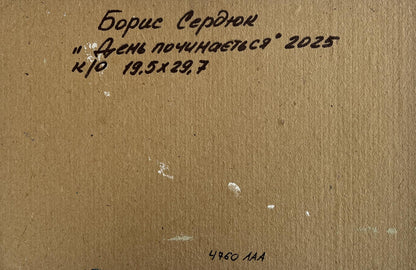 Борис Сердюк
„День починається" 2025
к/о 19,5х29,7
4760 ЛАА